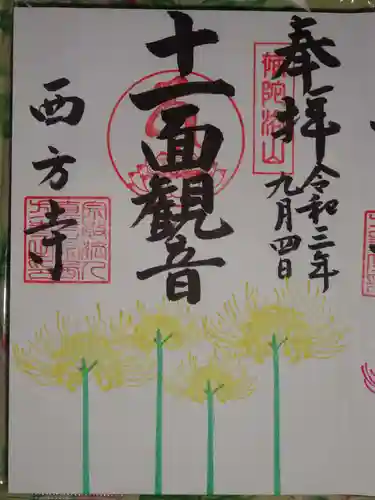 奉拝
令和三年
九月四日
補陀洛山
十一面観音
西方寺